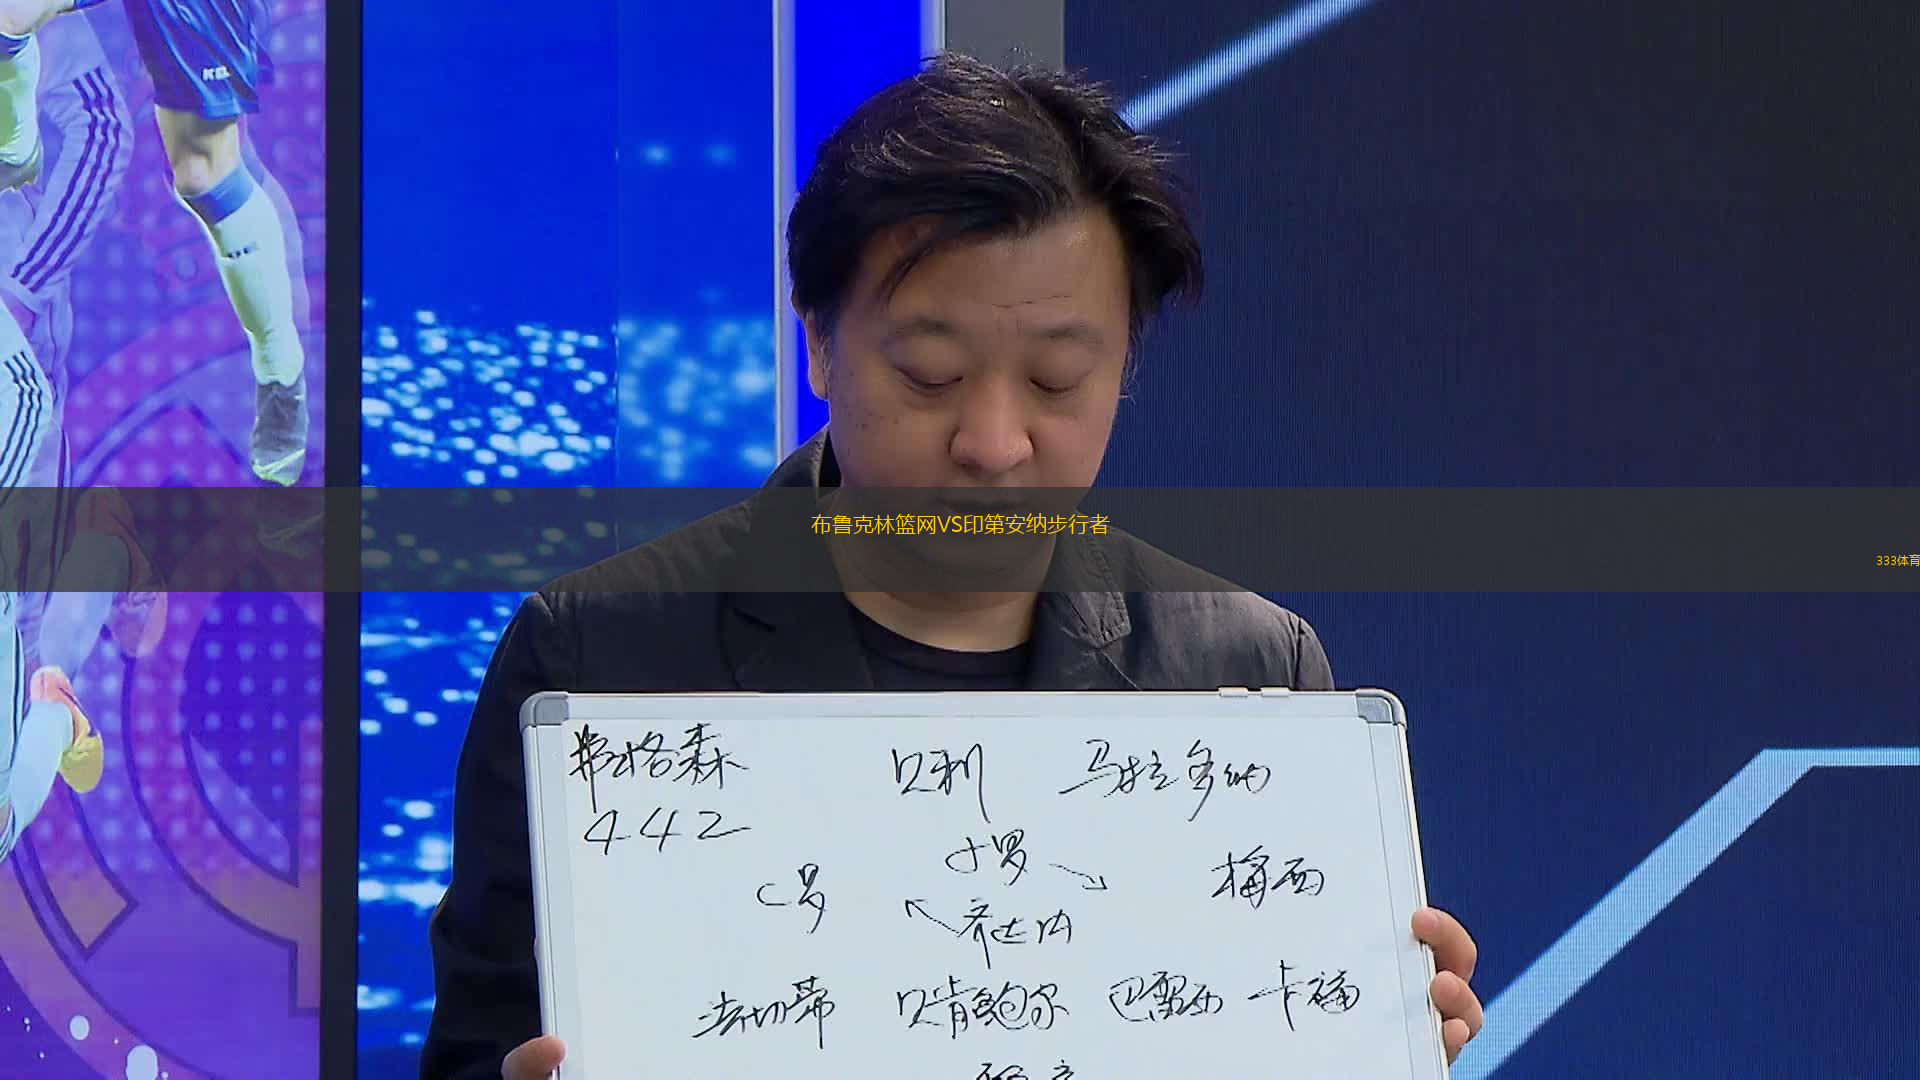 布鲁克林篮网VS印第安纳步行者
333体育
弗格森 贝利 马拉多纳
442
小罗
C罗 梅西
齐达内
法切蒂 贝肯鲍尔 巴雷西 卡福